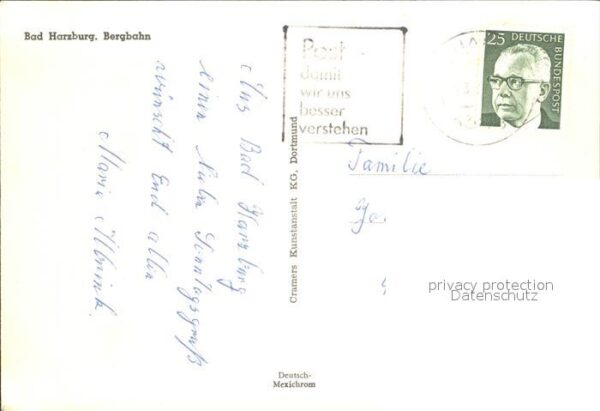 Bad Harzburg. Bergbahn
Aus Bad Harzburg
einen Sonntagsgruß
wünscht Euch allen
Maria
Cramers Kunstanstalt KG, Dortmund
Post
damit
wir uns
besser
verstehen
25 DEUTSCHE
BUNDESPOST
Familie
privacy protection
Datenschutz
Deutsch-
Mexichrom